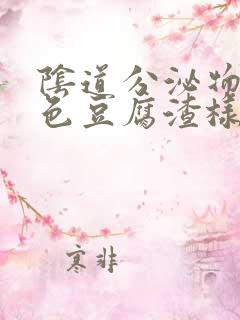 陰道分泌物
色豆腐渣樣
寒非